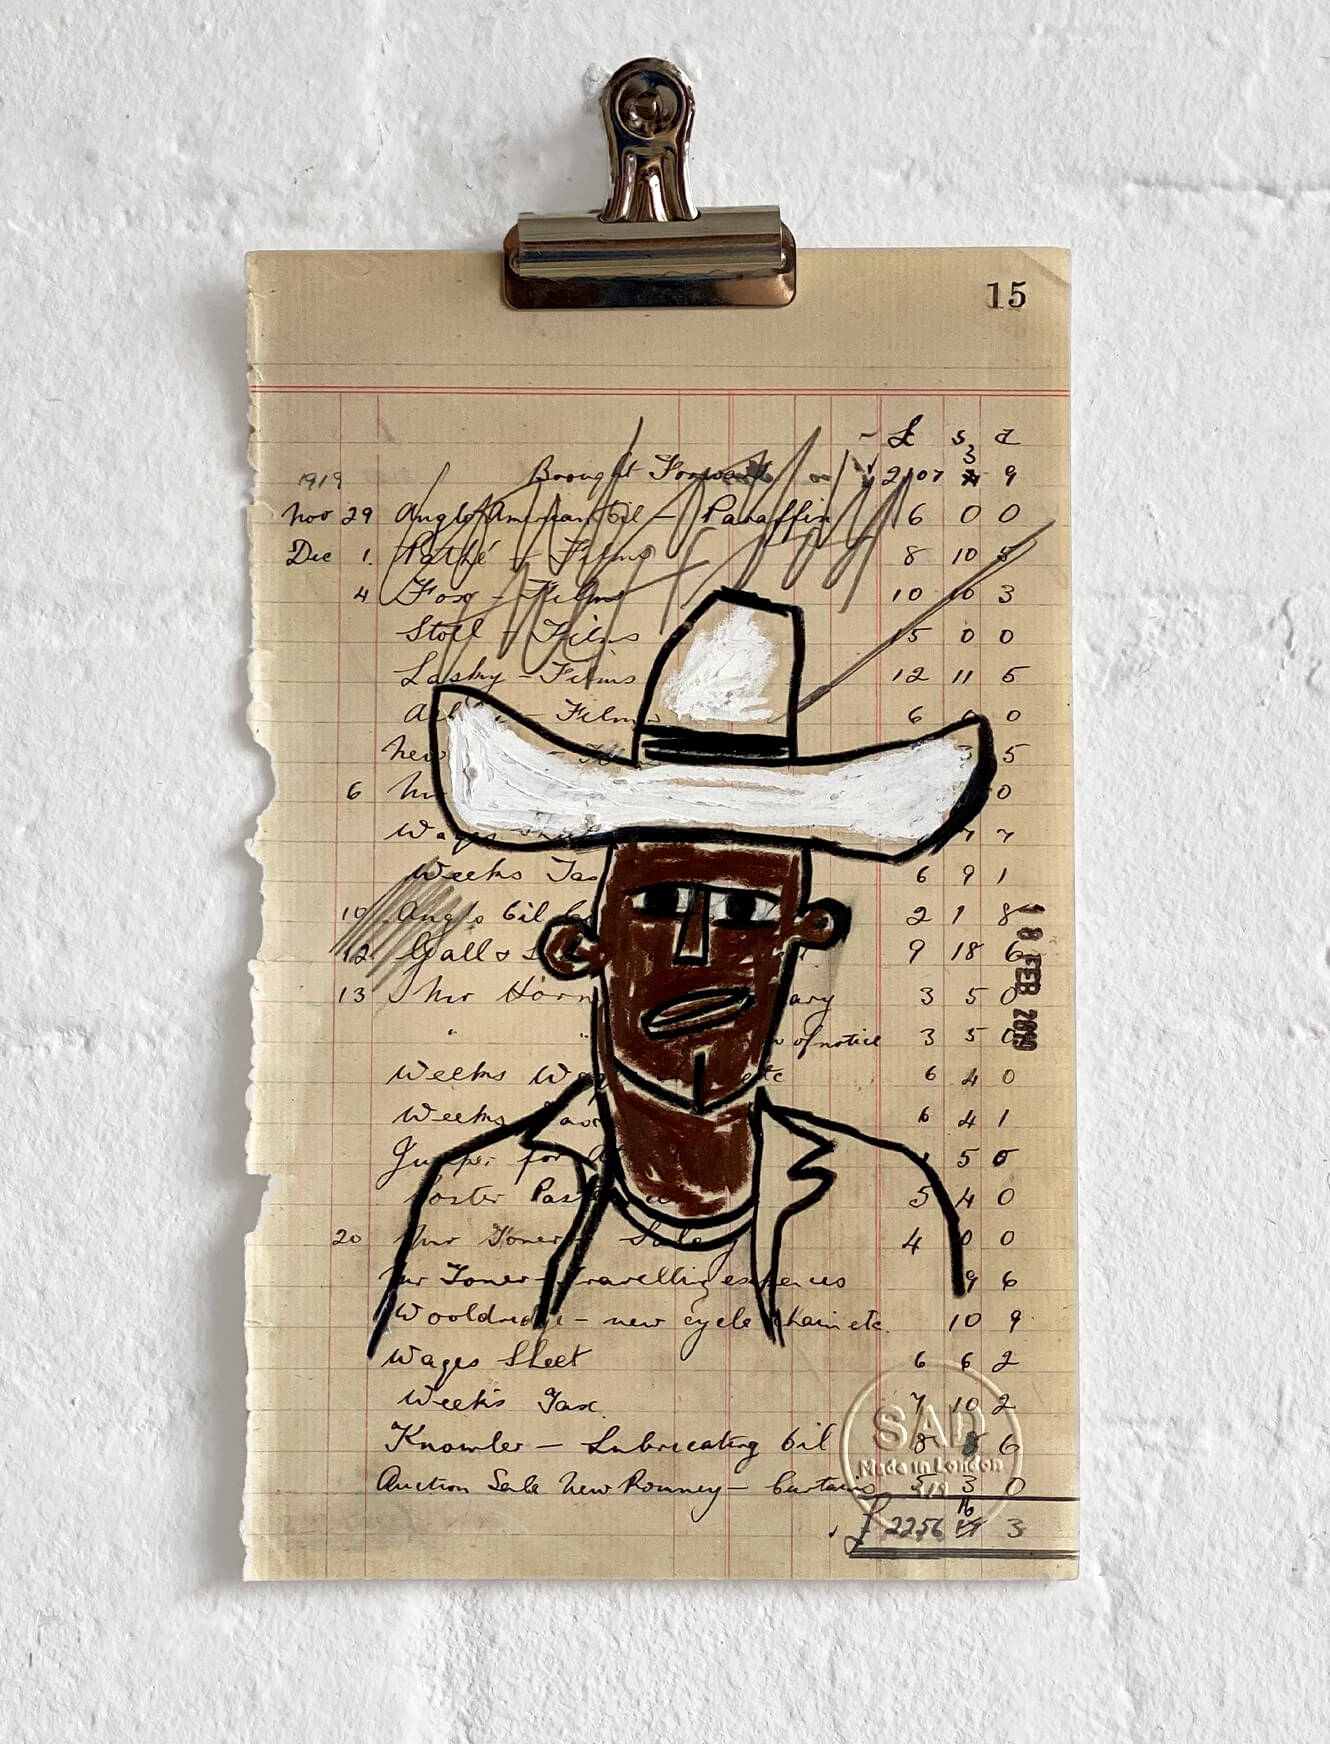 15
£ s d
1919 Brought Forward 2107 3 9
Nov 29 Anglo American Oil - Paraffin 6 0 0
Dec 1. Pathé - Films 8 10 5
4 Fox - Films 10 10 3
Stoll - Films 15 0 0
Lasky - Films 12 11 5
Films 6 0
5
6 0
Wages Sheet 7 7
Weeks Tax 6 9 1
10 Anglo Oil 2 1 8
12 Gall & 9 18 6
13 Mr Horn 3 5 0
" " of notice 3 5 0
Weeks etc 6 4 0
Weeks Tax 6 4 1
for 5
Poster 5 4 0
20 Mr Toner - Salary 4 0 0
Mr Toner - Travelling expences 9 6
Wooldridge - new cycle chain etc. 10 9
Wages Sheet 6 6 2
Week's Tax. 7 10 2
Knowler - Lubricating Oil 8 8 6
Auction Sale New Romney - Curtains 5 3 0
£ 2256 16 3
18 FEB 2019
SAD
Made in London